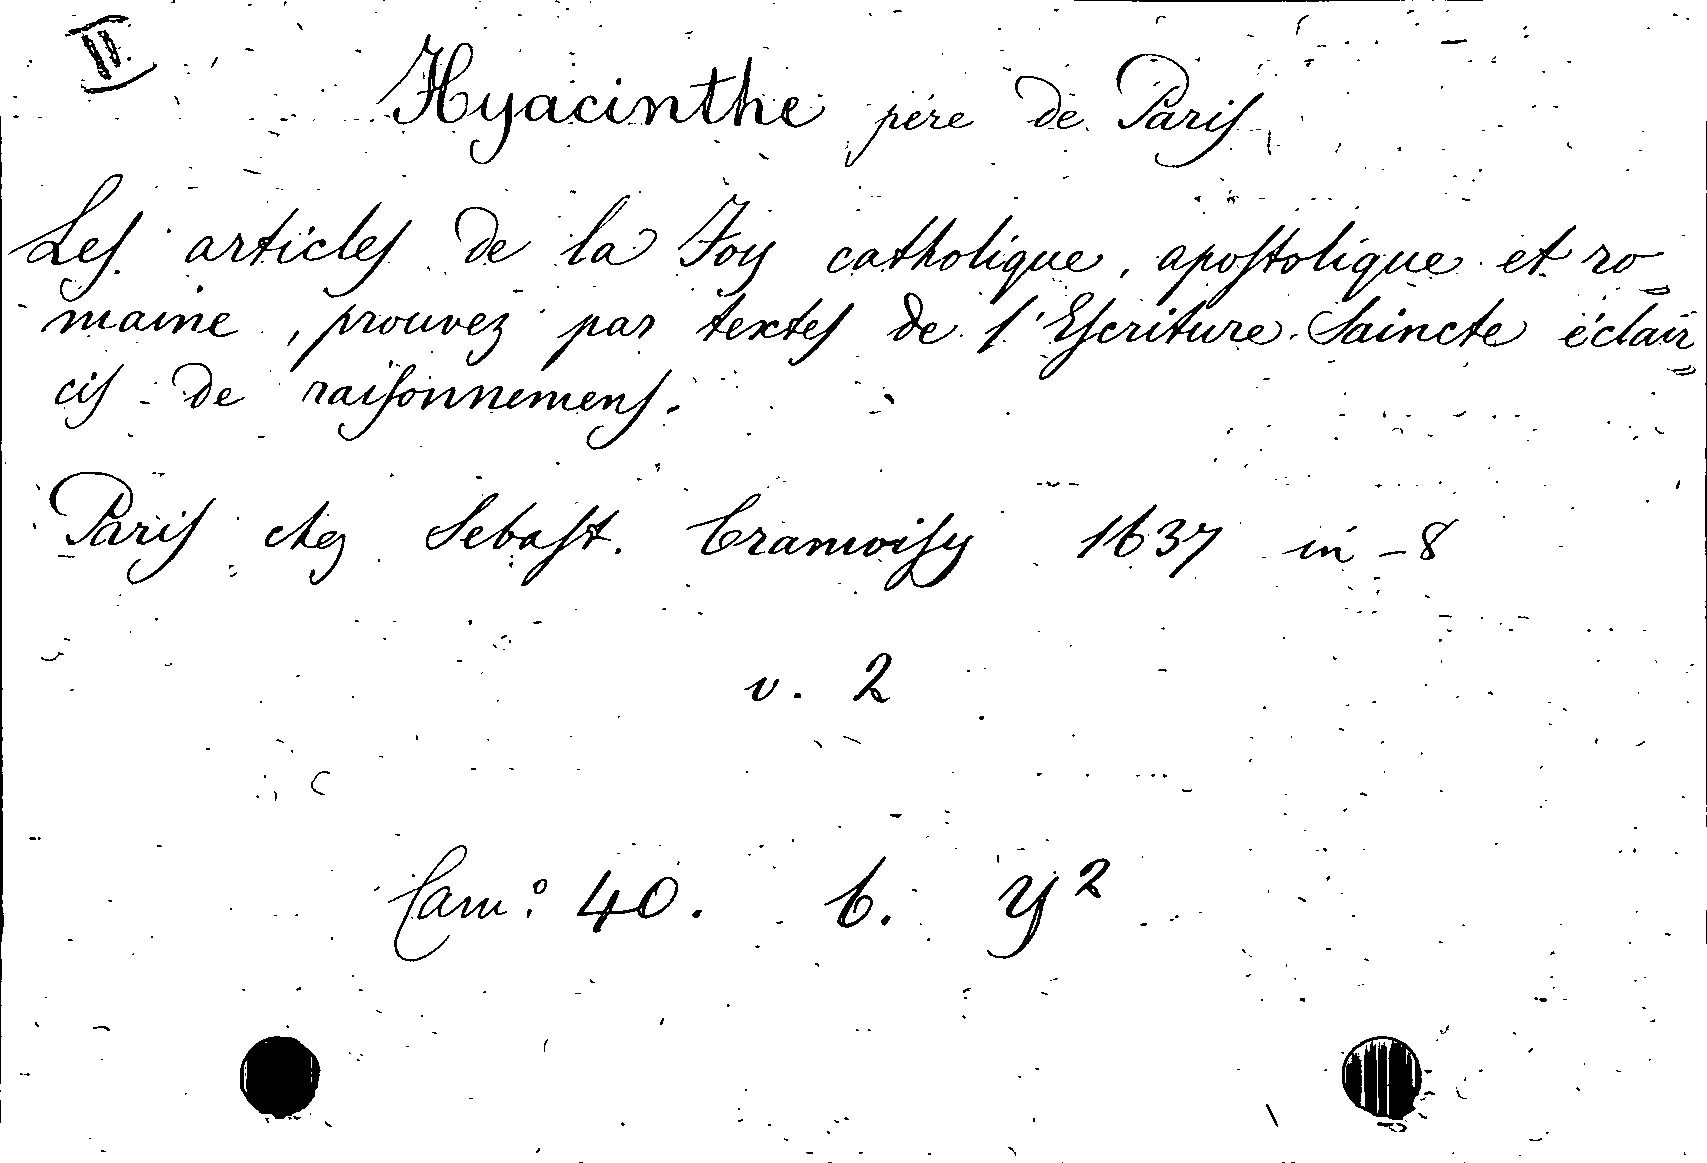 II.
Hyacinthe père de Paris
Les articles de la Foy catholique, apostolique et ro=
maine, prouvez par textes de l'Escriture Saincte éclair=
cis de raisonnemens.
Paris chez Sebast. Cramoisy 1637 in-8
v. 2
Cam: 40. b. y²